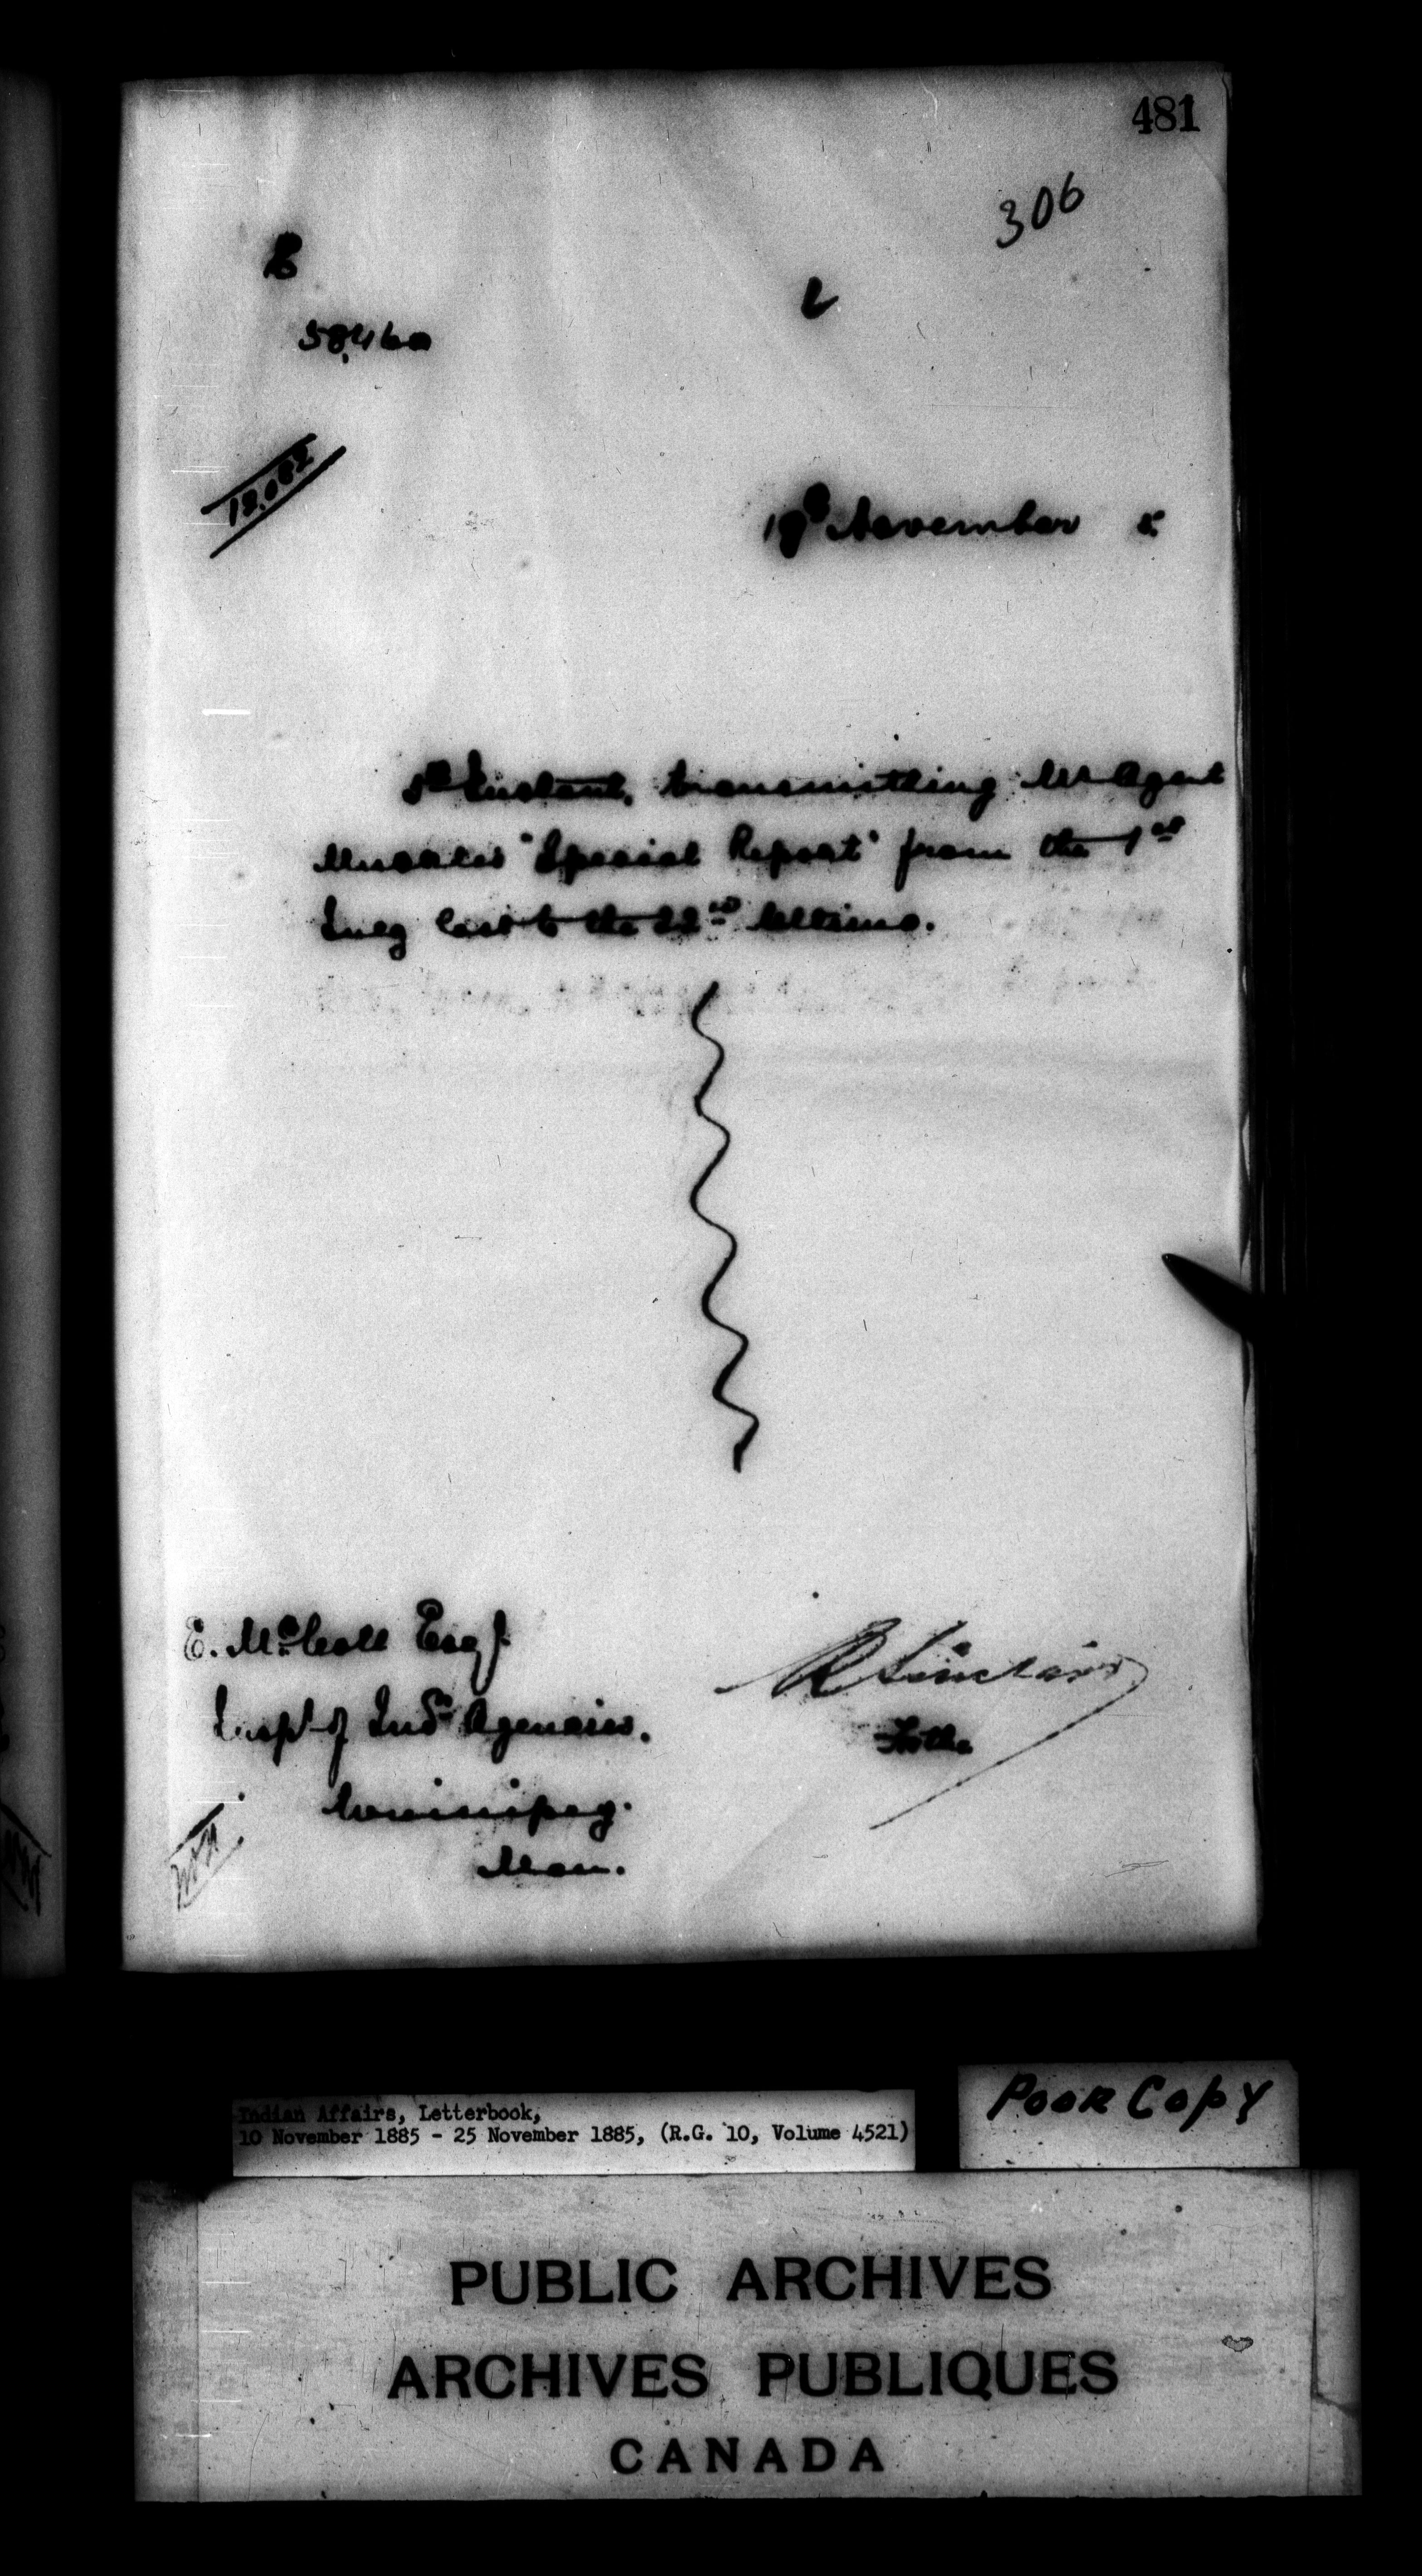 481
306
L
18th November 5
Instant, transmitting Mr Agent
"Special Report" from the 1st
July last to the 22nd Ultimo.
E. McColl Esq
Inspt of Indn Agencies.
Winnipeg.
Man.
R Sinclair
Indian Affairs, Letterbook,
10 November 1885 - 25 November 1885, (R.G. 10, Volume 4521)
POOR COPY
PUBLIC ARCHIVES
ARCHIVES PUBLIQUES
CANADA